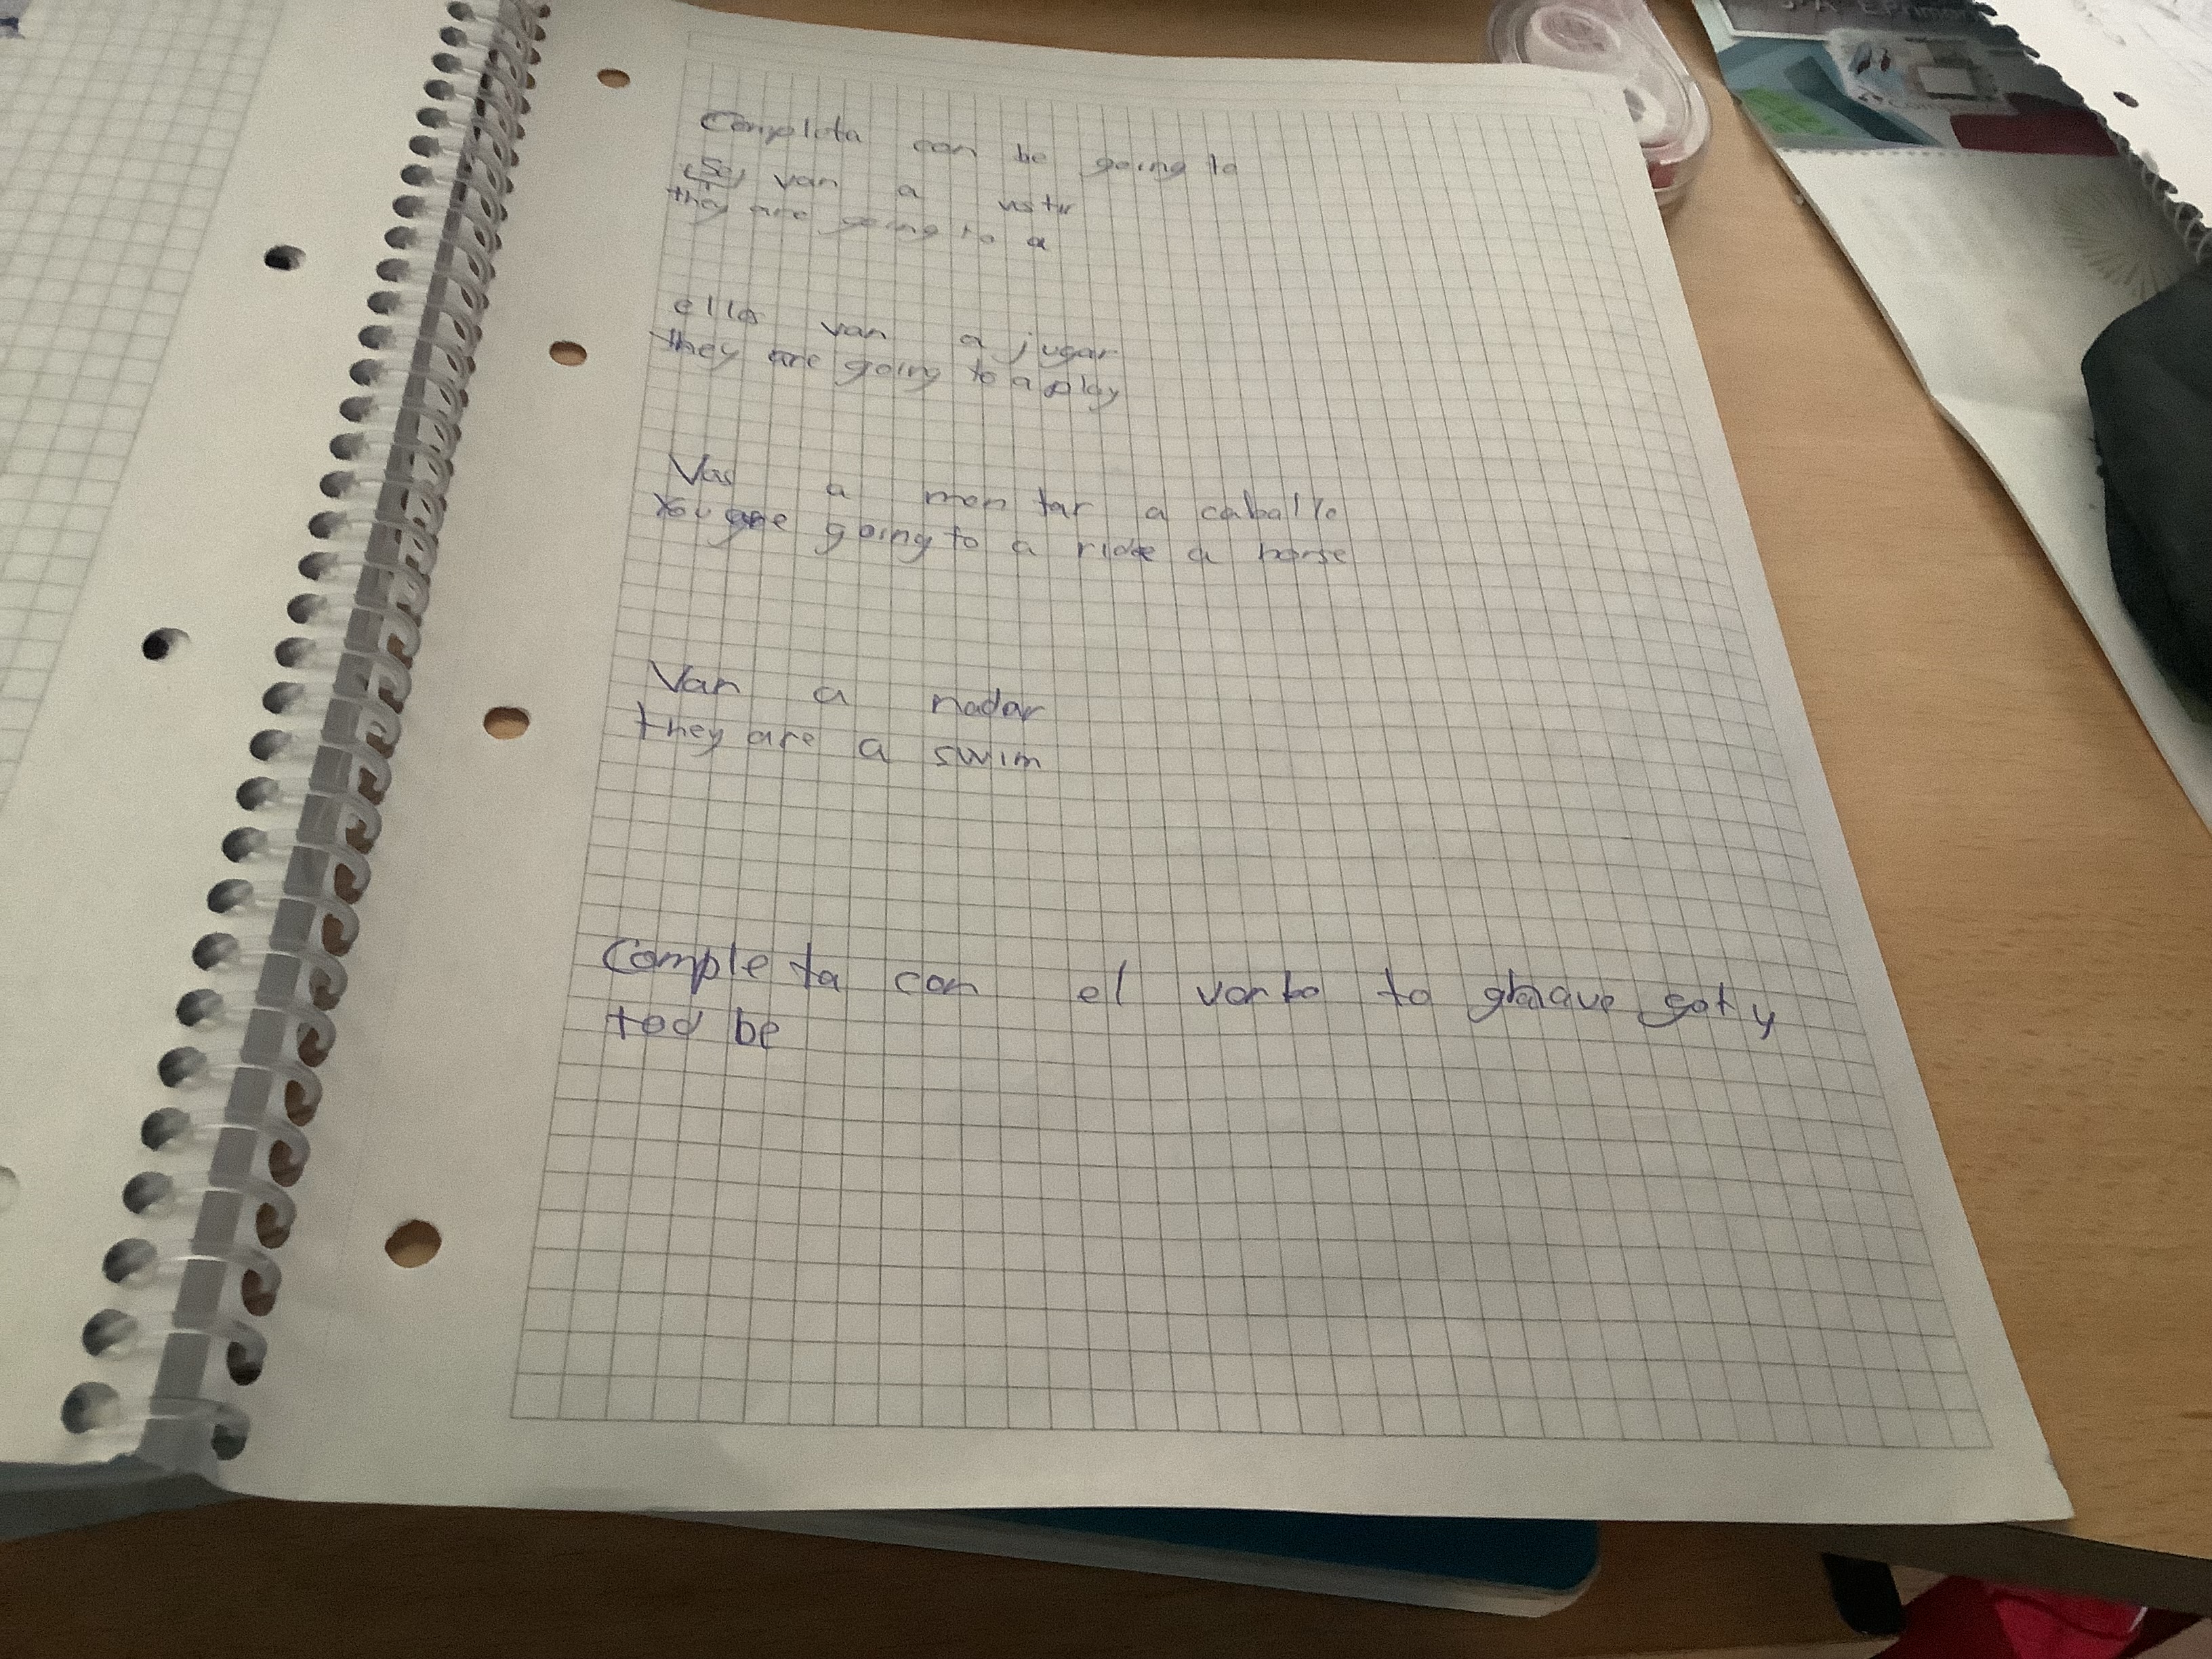 Completa con be going to
(Se) van a vestir
they are going to a
ellos van a jugar
they are going to a play
Vas a mon tar a caballo
You are going to a ride a horse
Van a nadar
they are a swim
Comple ta con el verbo to have got y
to be